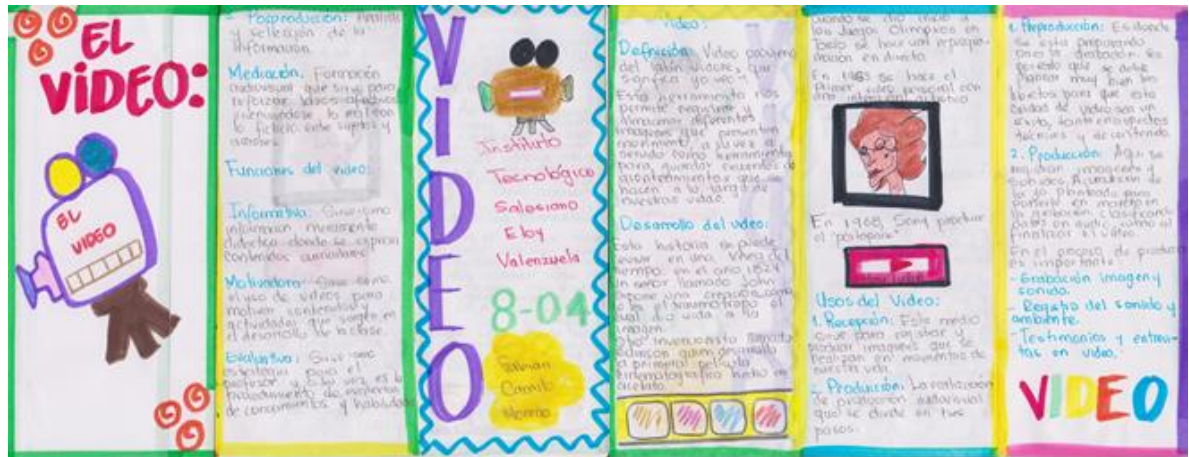 EL
VIDEO:
EL
VIDEO
- Posproducción: Análisis
y selección de la
información.
Mediación: Formación
audiovisual que sirve para
reforzar lazos afectivos
lo ficticio entre sujetos y
Funciones del video:
Informativa: Sirve como
información meramente
didáctica donde se expresan
contenidos curriculares.
Motivadora: Sirve como
el uso de videos para
motivar contenidos y
actividades que surgen en
el desarrollo de la clase.
Evaluativa: Sirve como
estrategia para el
profesor y a su vez es el
procedimiento de
de conocimientos y habilidades
VIDEO
Instituto
Tecnológico
Salesiano
Eloy
Valenzuela
8-04
Fabian
Camilo
Video:
Definición: Video proviene
del latín videre, que
significa yo veo.
Esta herramienta nos
permite registrar y
almacenar diferentes
imágenes que presenten
movimiento, a su vez a
servido como herramienta
para guardar
acontecimientos que se
hacen a lo largo de
nuestras vidas.
Desarrollo del video:
Esta historia se puede
en una línea del
tiempo, en el año 1824
un señor llamado John
una creación como
el taumatropo el
cual dio vida a la
imagen.
Otro inventor llamado
Edinson quien desarrolla
la primera película
cinematográfica hecha en
acetato.
cuando se dio inicio a
los Juegos Olímpicos en
Tokio se hace una
en directo.
En 1965 se hace el
Primer video personal con
una intención artística
En 1968, Sony produce
el "portapack"
Usos del Video:
1. Recepción: Este medio
sirve para registrar y
imágenes que se
realizan en momentos de
nuestra vida.
2. Producción: La realización
de producción audiovisual
que se divide en tres
pasos:
1. Preproducción: Es donde
se está preparando
para la grabación es un
periodo que se debe
planear muy bien los
objetos para que esta
calidad de video sea un
éxito, tanto en aspectos
técnicos y de contenido.
2. Producción: Aquí se
registran imágenes y
sonidos. Acumulación de
lo ya planteado para
ponerlo en marcha en
la grabación, clasificando
finalizar el video.
En el proceso de producción
es importante
- Grabación imagen y
sonido.
- Registro del sonido y
ambiente.
- Testimonios y entrevis-
tas en video.
VIDEO